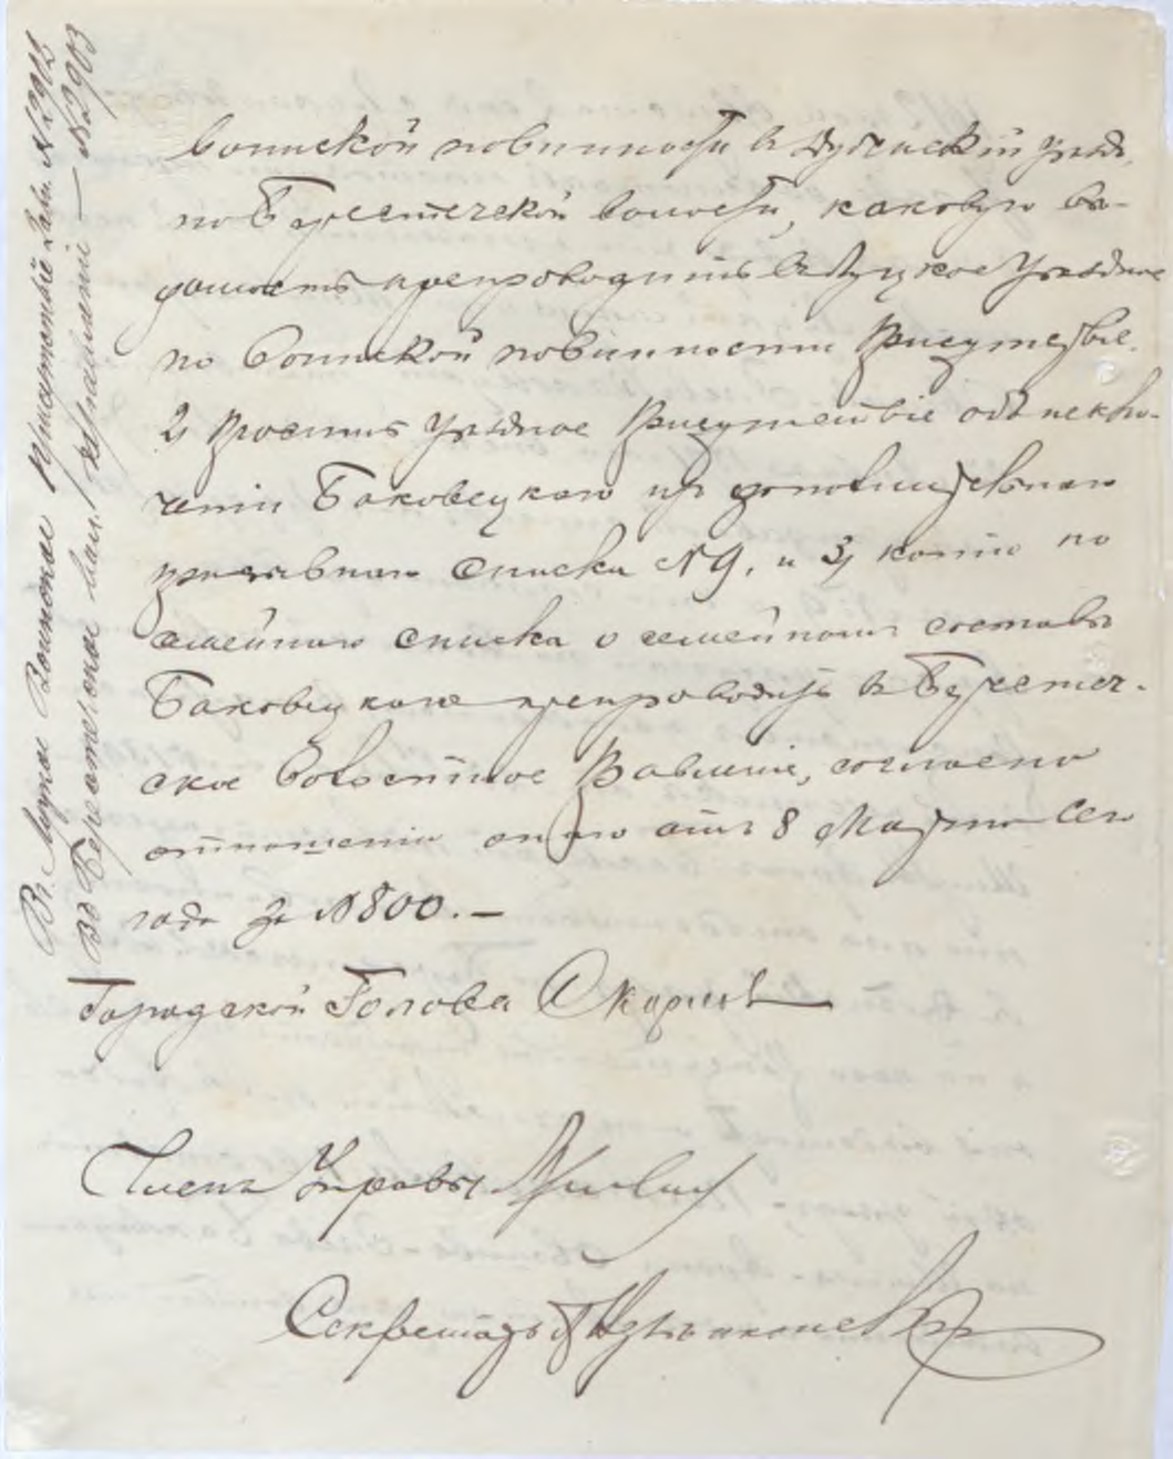 воинской повинности въ Дубенскій уѣздъ,
по Берестечской волости, каковую вѣ-
домость препроводить въ Луцкое Уѣздное
по воинской повинности Присутствіе.
2, Просить Уѣздное Присутствіе объ исклю-
ченіи Баковецкаго изъ дополнительнаго
призывнаго списка №9, и 3, копію по
семейнаго списка о семейномъ составѣ
Баковецкаго препроводить въ Берестеч-
ское Волостное Правленіе, согласно
отношенію онаго отъ 8 Марта сего
года за №800.—
Городской Голова
Членъ Управы
Секретарь
Въ Луцкое Воинское Присутствіе №2902
Въ Берестечское Вол. Правленіе — №2903